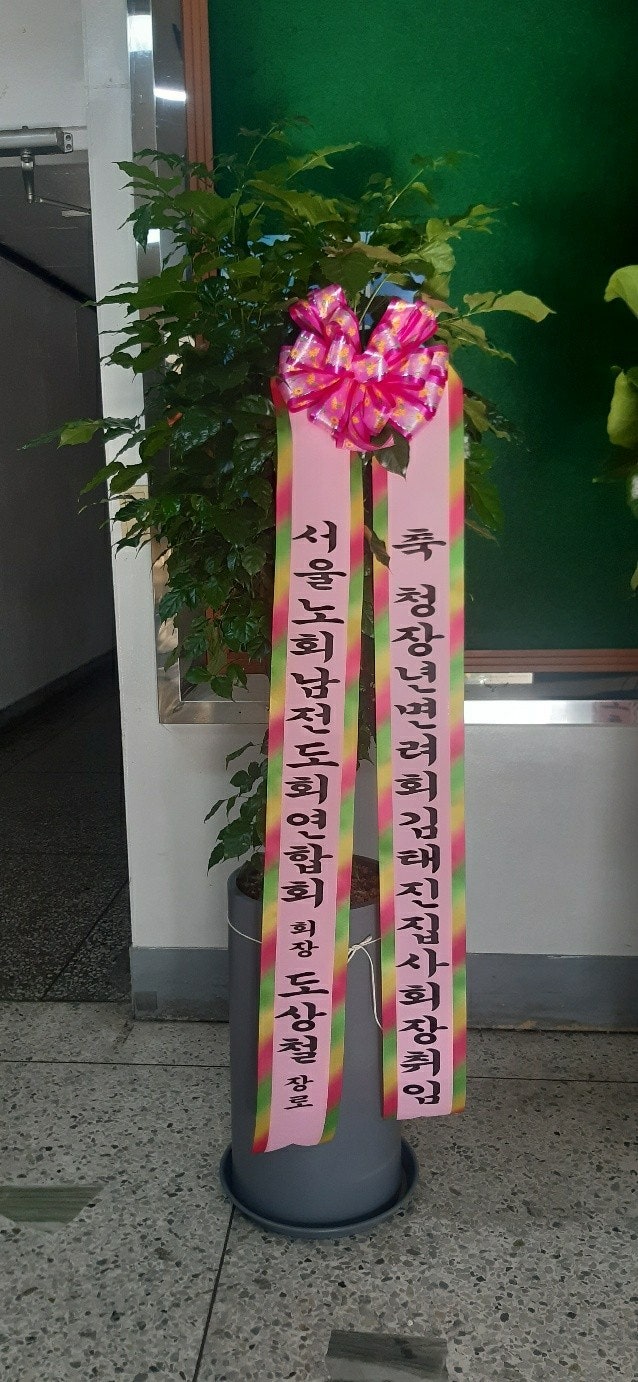 축 청장년면려회김태진집사회장취임
서울노회남전도회연합회 회장 도상철 장로